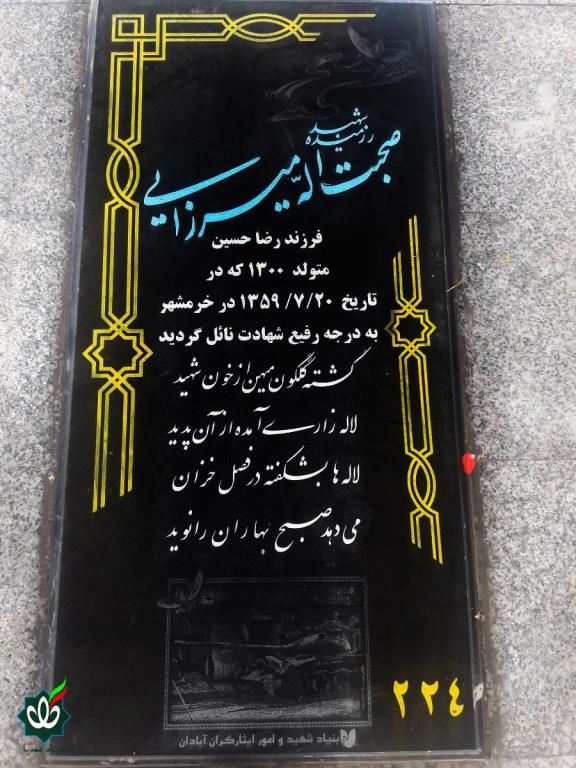 رزمنده شهید
صحبت اله میرزایی
فرزند رضا حسین
متولد ۱۳۰۰ که در
تاریخ ۱۳۵۹/۷/۲۰ در خرمشهر
به درجه رفیع شهادت نائل گردید
گشته گلگون میهن از خون شهید
لاله زاری آمده از آن پدید
لاله ها بشکفته در فصل خزان
می دهد صبح بهاران را نوید
۲۲۴
بنیاد شهید و امور ایثارگران آبادان